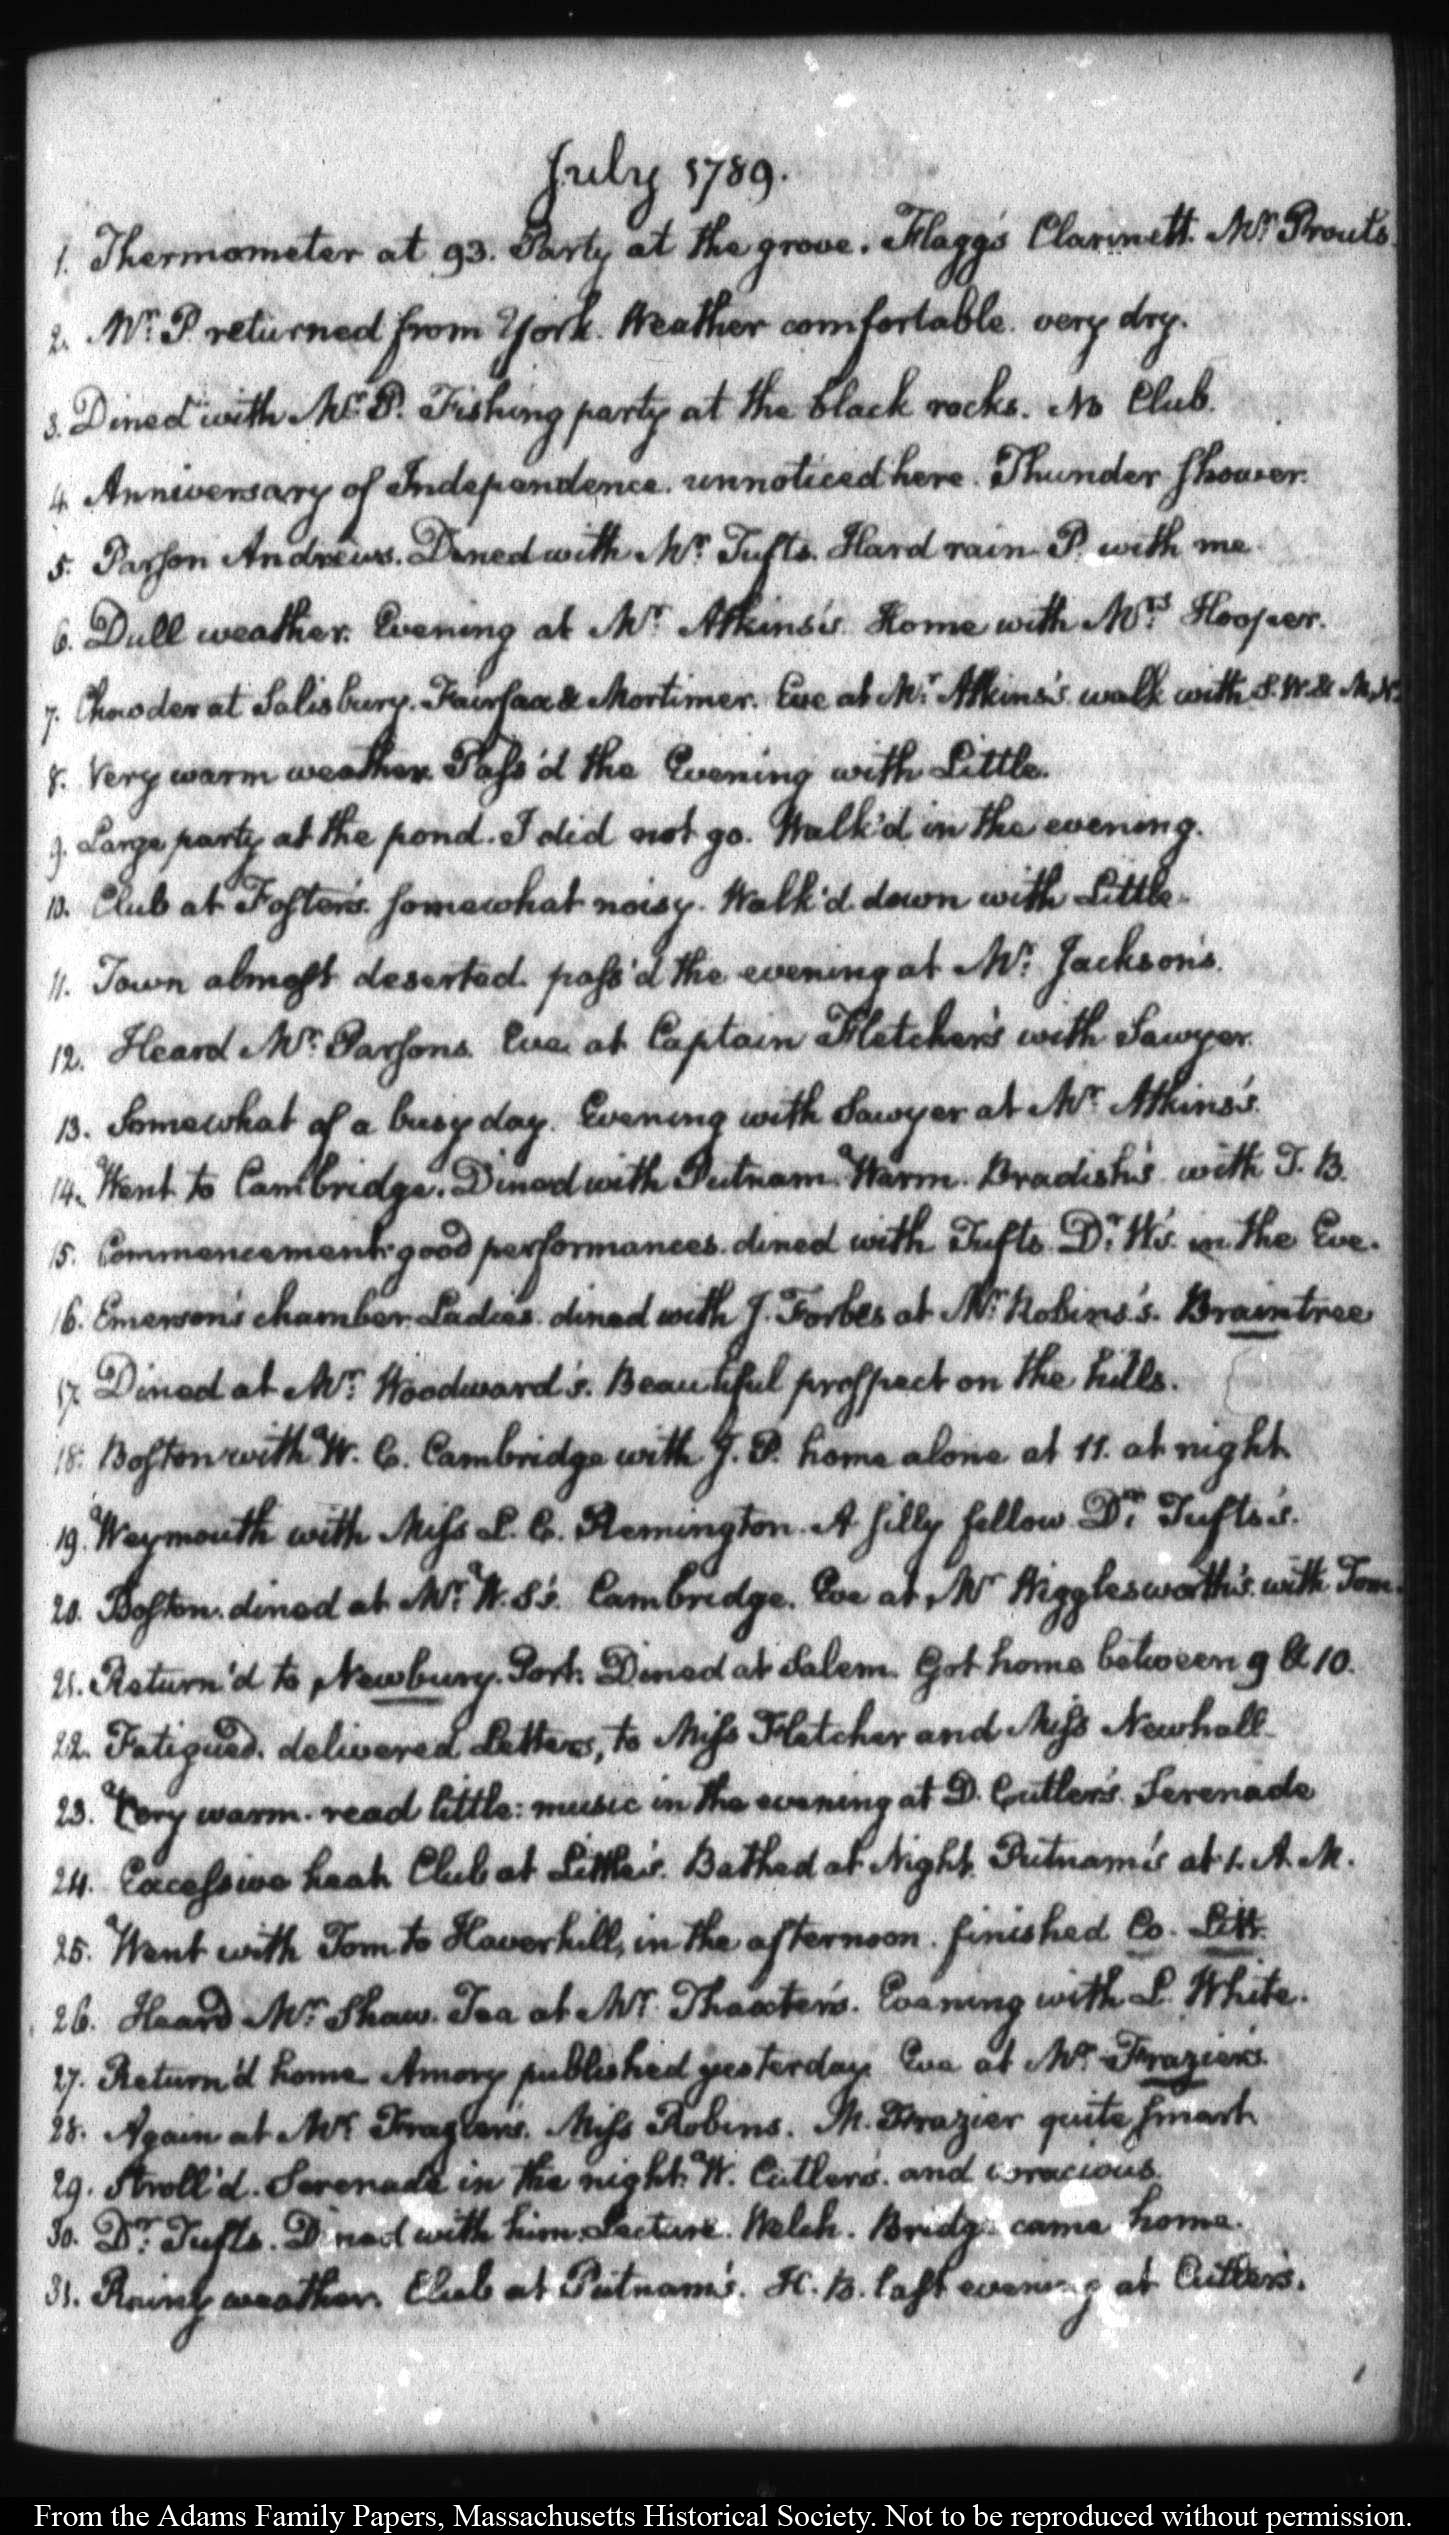 July 1789.
1. Thermometer at 93. Party at the grove. Flagg's Clarinett. Mr. Prouts.
2. Mr. P. returned from York. Weather comfortable. very dry.
3. Dined with Mr. P. Fishing party at the black rocks. No Club.
4. Anniversary of Independence. unnoticed here. Thunder shower.
5. Parson Andrews. Dined with Mr. Tufts. Hard rain. P. with me.
6. Dull weather. Evening at Mr. Atkins's. Home with Mrs. Hooper.
7. Chowder at Salisbury. Fairfax & Mortimer. Eve at Mr. Atkins's. walk with S. W. & M. N.
8. Very warm weather. Pass'd the Evening with Little.
9. Large party at the pond. I did not go. Walk'd in the evening.
10. Club at Foster's. somewhat noisy. Walk'd down with Little.
11. Town almost deserted. pass'd the evening at Mr. Jackson's.
12. Heard Mr. Parsons. Eve at Captain Fletcher's with Sawyer.
13. Somewhat of a busy day. Evening with Sawyer at Mr. Atkins's.
14. Went to Cambridge. Dined with Putnam. Warm. Bradish's with T. B.
15. Commencement: good performances. dined with Tufts. Dr. W's. in the Eve.
16. Emerson's chamber. Ladies. dined with J. Forbes at Mr. Robins's. Braintree
17. Dined at Mr. Woodward's. Beautiful prospect on the hills.
18. Boston with W. C. Cambridge with J. P. home alone at 11. at night.
19. Weymouth with Miss L. C. Remington. A silly fellow. Dr. Tufts's.
20. Boston. dined at Mr. W. S's. Cambridge. Eve at Mr. Wigglesworth's. with Tom.
21. Return'd to Newbury-Port. Dined at Salem. Got home between 9 & 10.
22. Fatigued. delivered Letters, to Miss Fletcher and Miss Newhall
23. Very warm. read little: music in the evening at D. Cutler's. Serenade
24. Excessive heat. Club at Little's. Bathed at Night. Putnam's at 1. A. M.
25. Went with Tom to Haverhill, in the afternoon. finished Co. Litt.
26. Heard Mr. Shaw. Tea at Mr. Thaxter's. Evening with L. White.
27. Return'd home. Amory published yesterday. Eve at Mr. Frazier's.
28. Again at Mr. Frazier's. Miss Robins. M. Frazier quite smart.
29. Stroll'd. Serenade in the night. W. Cutler's. and voracious.
30. Dr. Tufts. Dined with him. Lecture. Welch. Bridge came home.
31. Rainy weather. Club at Putnam's. H. B. last evening at Cutler's.
From the Adams Family Papers, Massachusetts Historical Society. Not to be reproduced without permission.